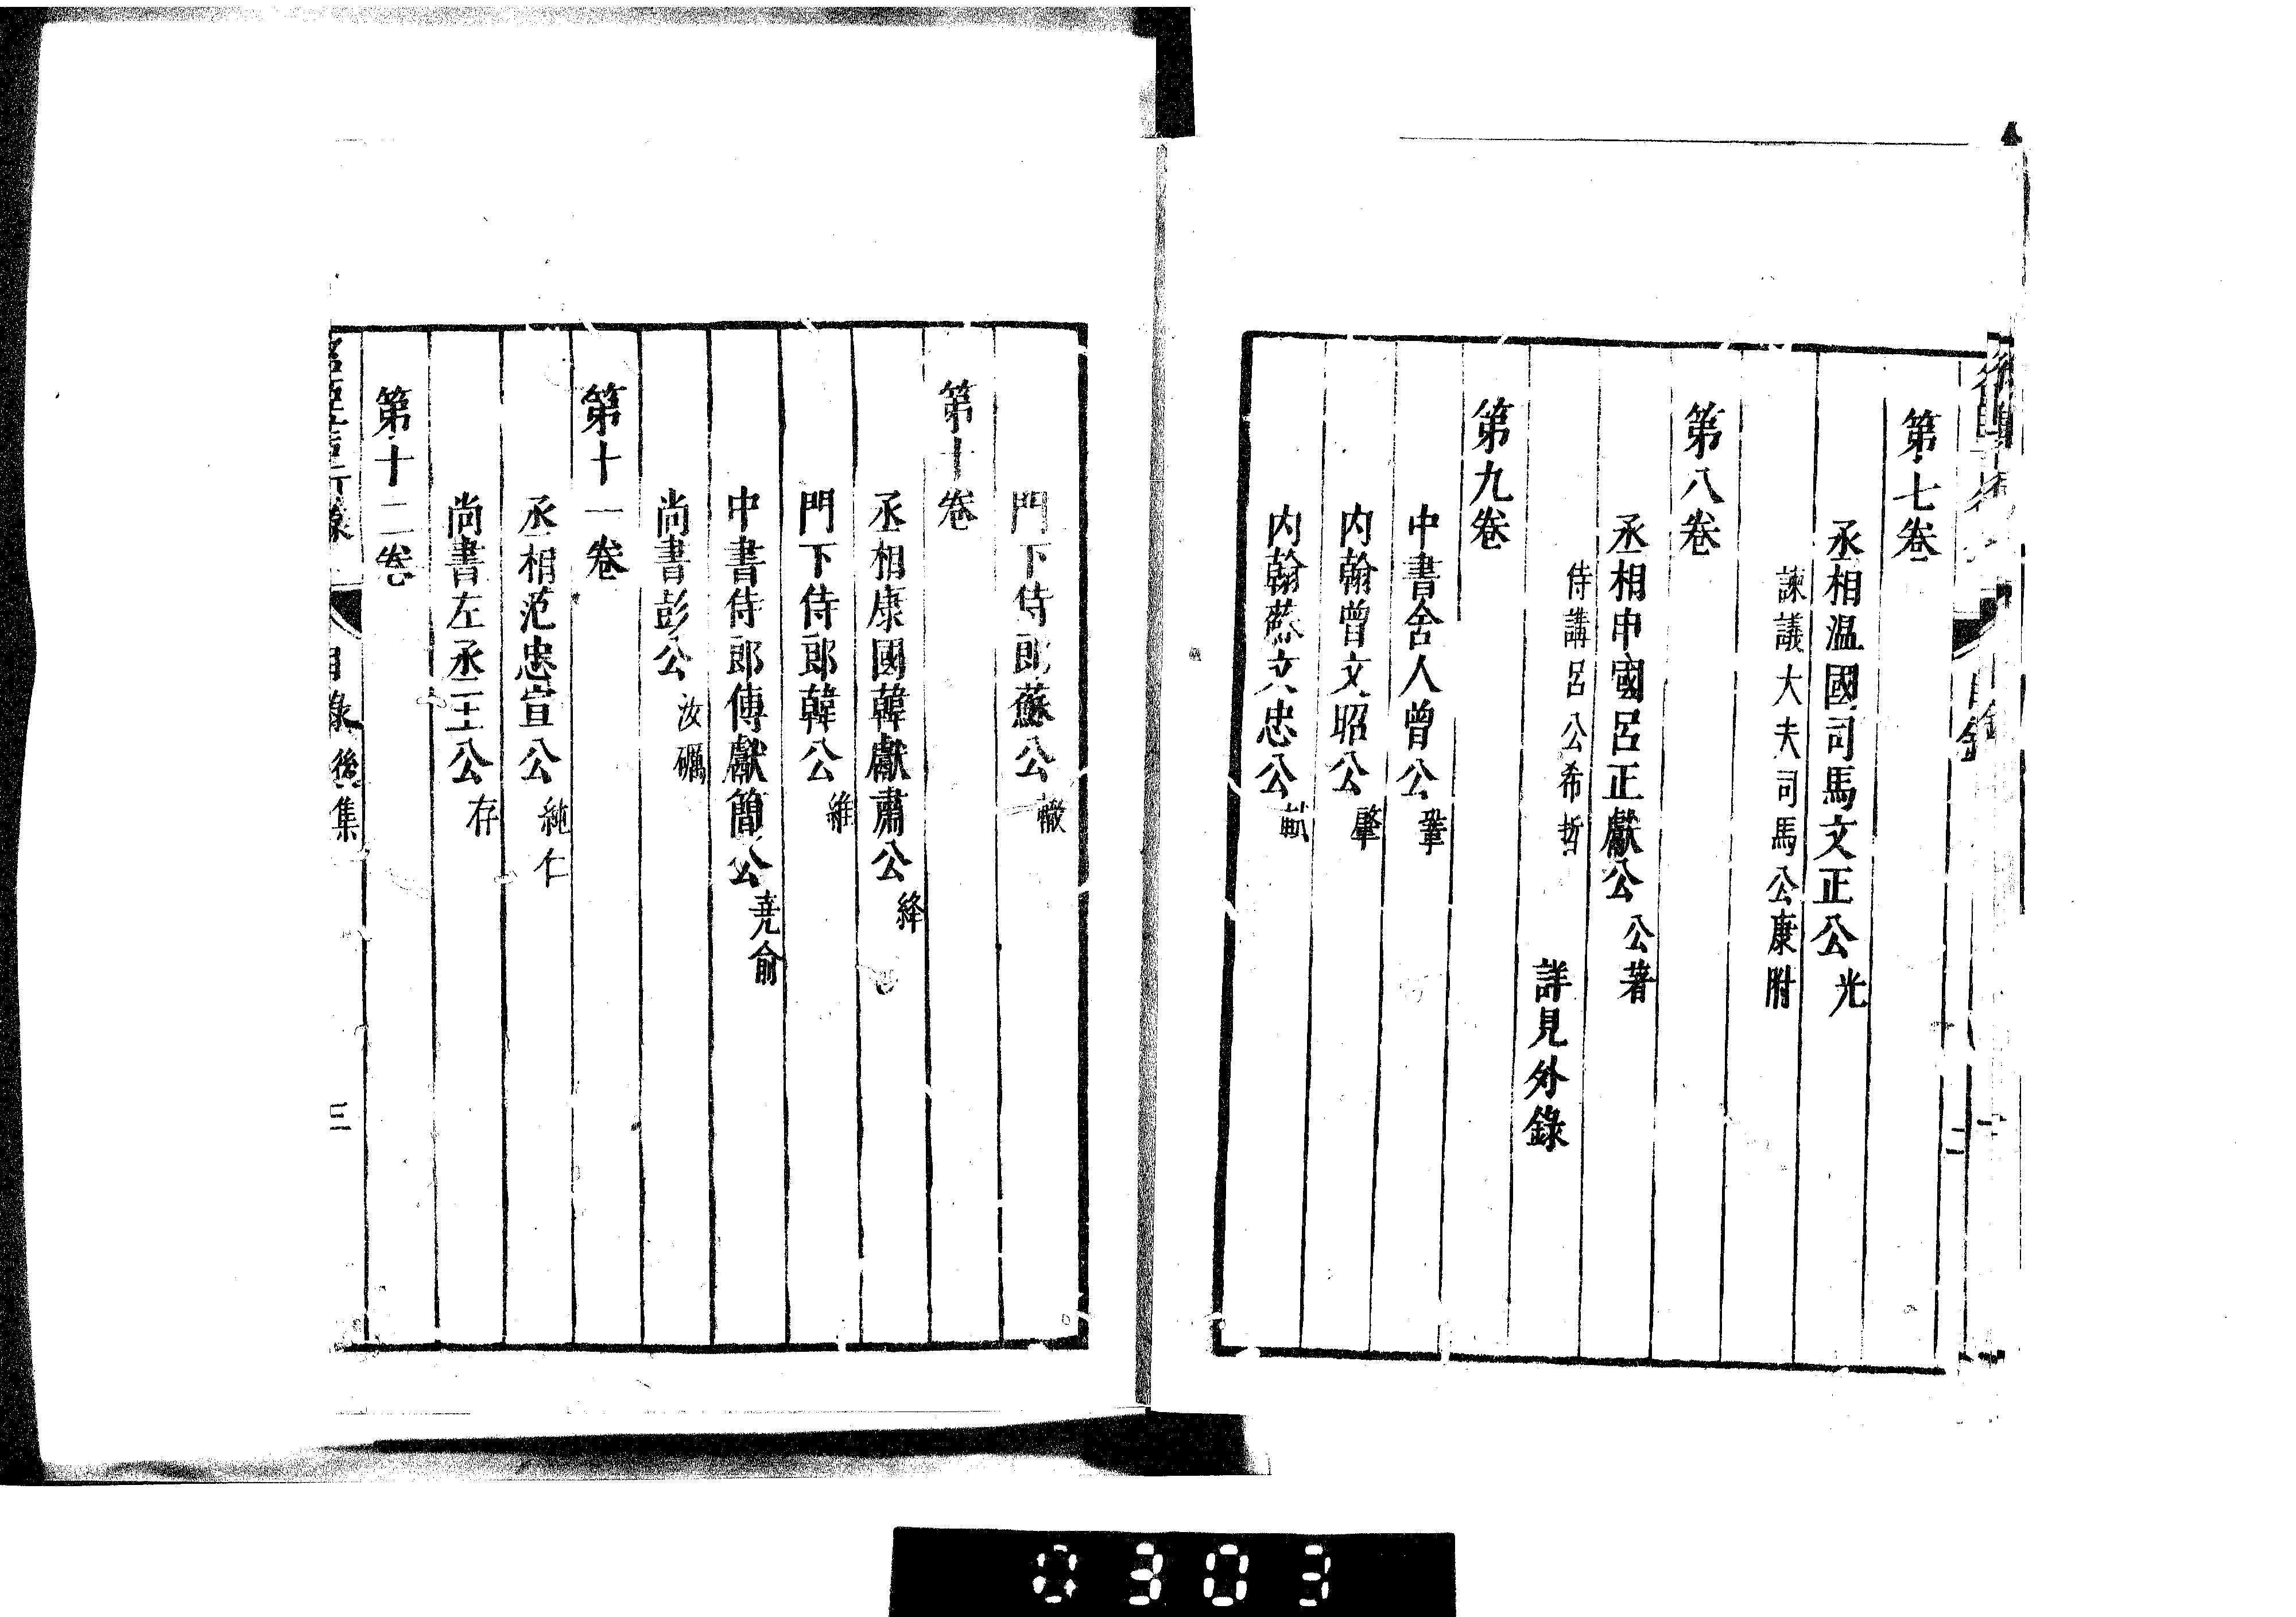 第七卷
丞相温國司馬文正公光
諫議大夫司馬公康附
第八卷
丞相申國呂正獻公公著
侍講呂公希哲 詳見外錄
第九卷
中書舍人曾公鞏
内翰曾文昭公肇
内翰蘇文忠公軾
門下侍郎蘇公轍
第十卷
丞相康國韓獻肅公絳
門下侍郎韓公維
中書侍郎傅獻簡公堯俞
尚書彭公汝礪
第十一卷
丞相范忠宣公純仁
尚書左丞王公存
第十二卷
目錄後集
三
0303